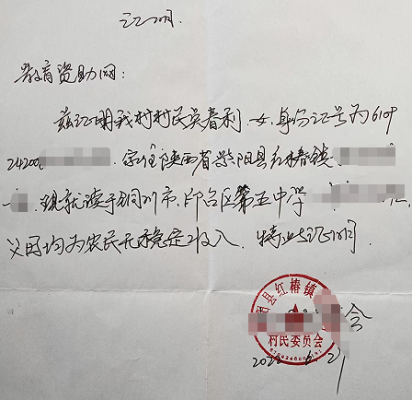 证明
教育资助网：
兹证明我村村民吴春利，女，身份证号为6109
24200 家住陕西省紫阳县红椿镇
现就读于铜川市 区第五中学
父母均为农民无稳定收入，特此证明
阳县红椿镇
会
村民委员会